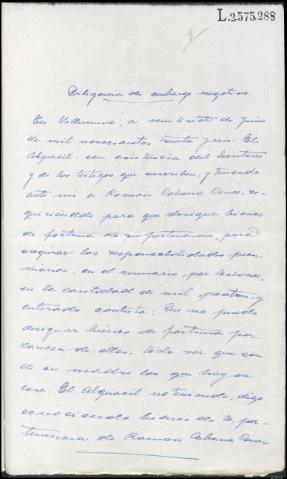 L.2575.288
Diligencia de embargo negativo.
En Villanueva, a veintisiete de Junio
de mil novecientos treinta y seis. El
Alguacil con asistencia del Secretario
y de los testigos que suscriben, y teniendo
ante mi a Ramón Cabana Canas, re-
quiriéndole para que designe bienes
de fortuna de su pertenencia, para
asegurar las responsabilidades pecu-
niarias, en el sumario por lesiones,
en la cantidad de mil pesetas, y
enterado contesta: Que no puede
designar bienes de fortuna por
carecer de ellos, toda vez que son
de su madre los que hay en
casa. El Alguacil no teniendo, digo
conociendo bienes de la per-
tenencia de Ramón Cabana Canas